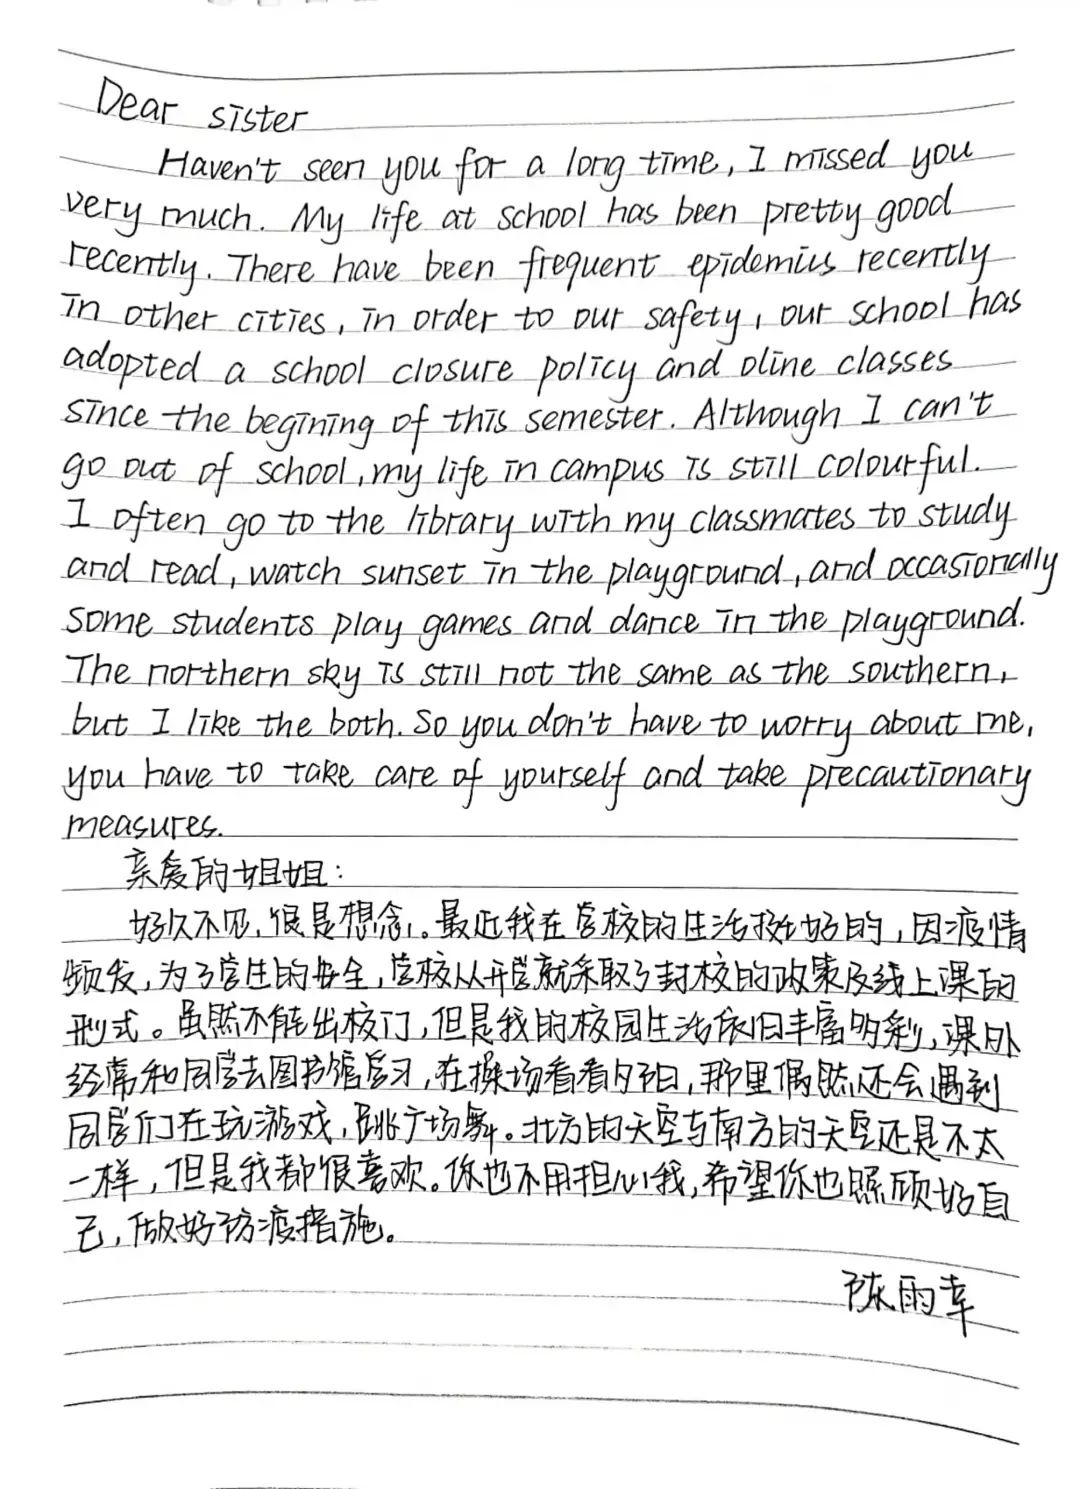 Dear sister
Haven't seen you for a long time, I missed you
very much. My life at school has been pretty good
recently. There have been frequent epidemius recently
in other cities, in order to our safety, our school has
adopted a school closure policy and oline classes
since the begining of this semester. Although I can't
go out of school, my life in campus is still colourful.
I often go to the library with my classmates to study
and read, watch sunset in the playground, and occasionally
some students play games and dance in the playground.
The northern sky is still not the same as the southern,
but I like the both. So you don't have to worry about me,
you have to take care of yourself and take precautionary
measures.
亲爱的姐姐:
好久不见,很是想念。最近我在学校的生活挺好的,因疫情
频发,为了学生的安全,学校从开学就采取了封校的政策及线上课的
形式。虽然不能出校门,但是我的校园生活依旧丰富多彩,课外
经常和同学去图书馆学习,在操场看看夕阳,那里偶然还会遇到
同学们在玩游戏,跳广场舞。北方的天空与南方的天空还是不太
一样,但是我都很喜欢。你也不用担心我,希望你也照顾好自
己,做好防疫措施。
陈雨幸